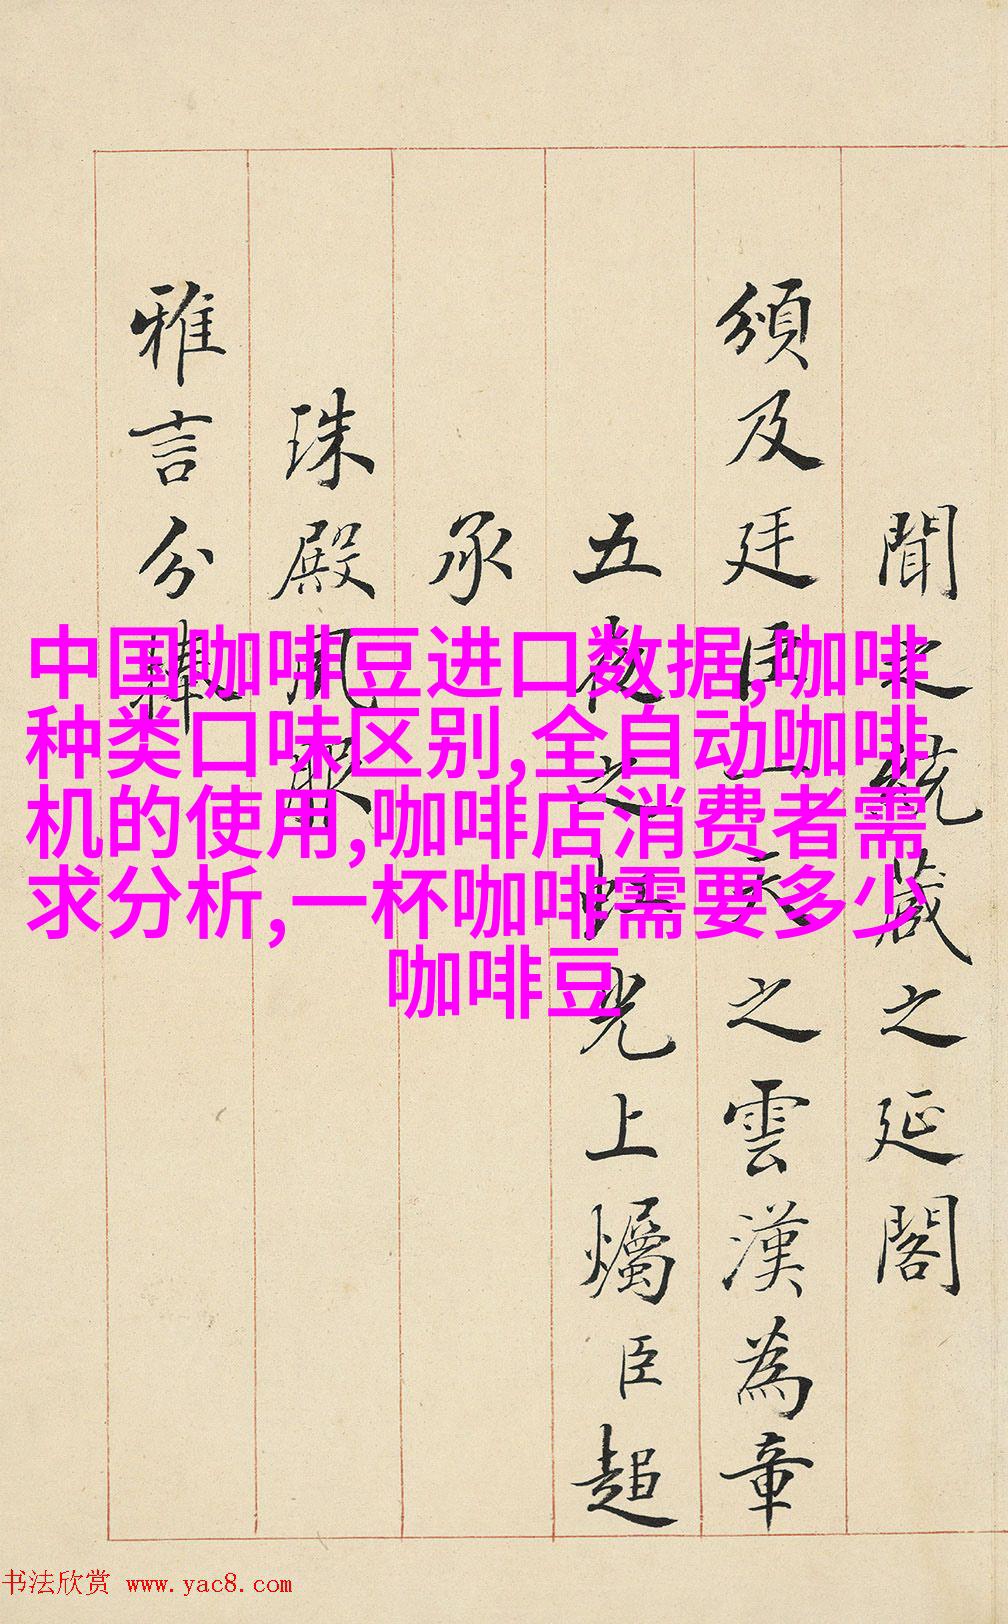 中国咖啡豆进口数据,咖啡
种类口味区别,全自动咖啡
机的使用,咖啡店消费者需
求分析,一杯咖啡需要多少
咖啡豆
聞統藏之延閣
頒及廷臣之雲漢為章
五夜之光上爥臣超
承
珠殿
雅言分
书法欣赏 www.yac8.com